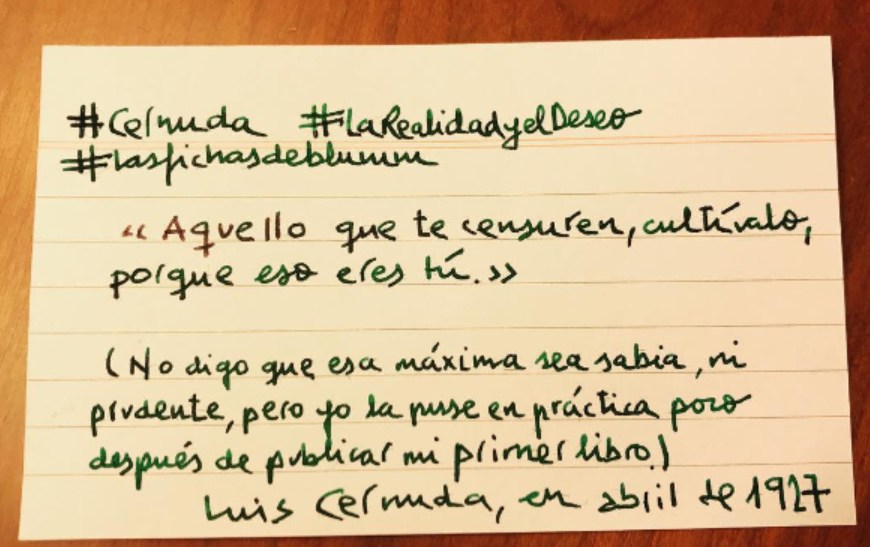 #Cernuda #LaRealidadyelDeseo
#lasfichasdeblumm
“Aquello que te censuren, cultívalo,
porque eso eres tú.»
(No digo que esa máxima sea sabia, ni
prudente, pero yo la puse en práctica poco
después de publicar mi primer libro.)
Luis Cernuda, en abril de 1927